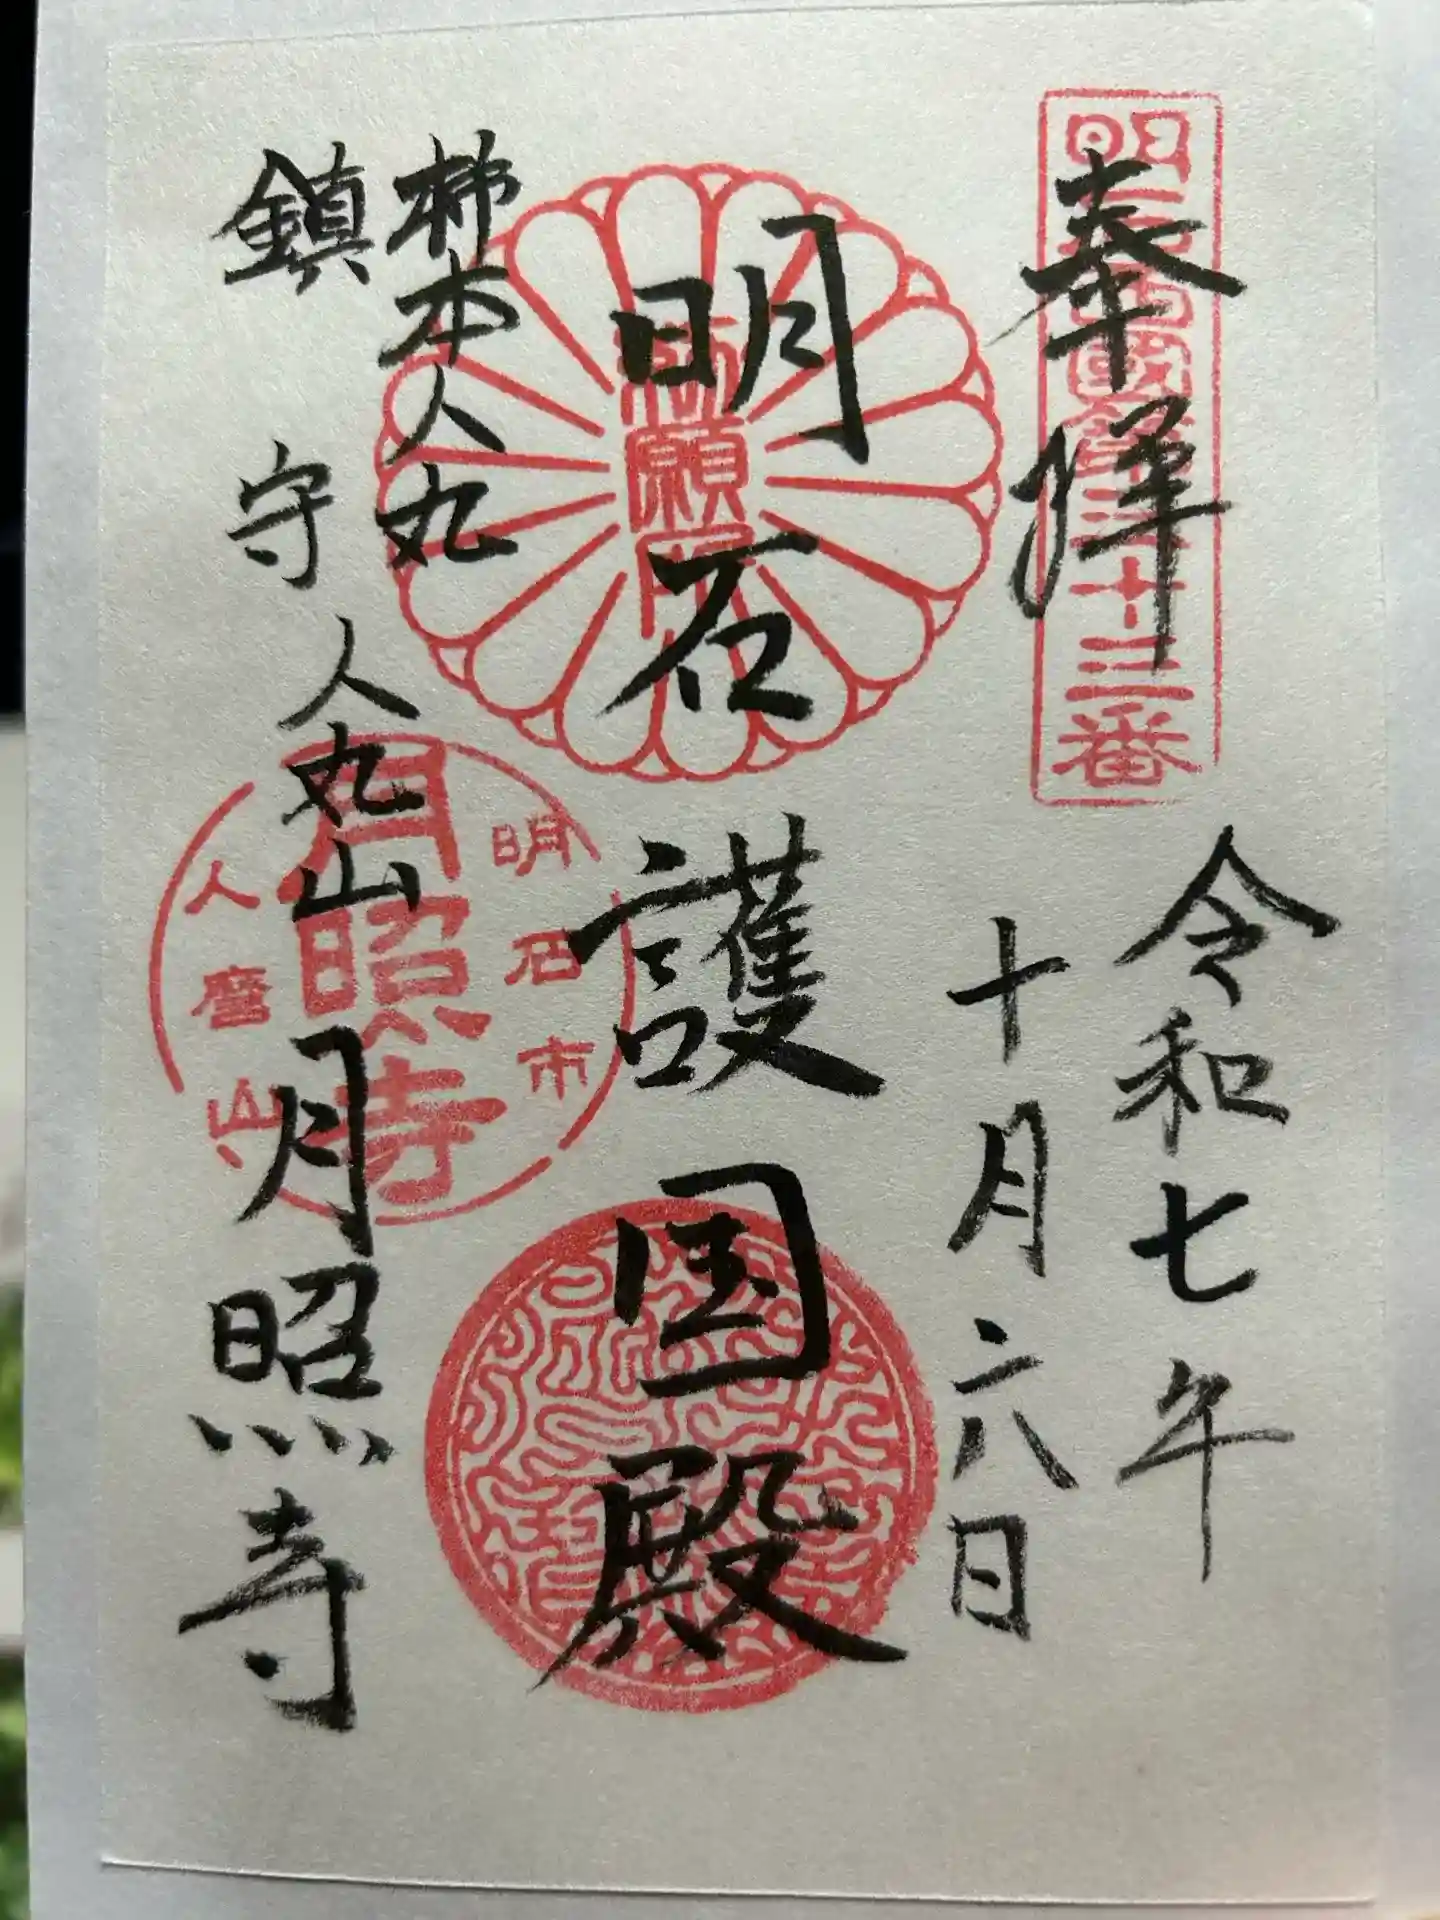 奉拝
令和七年
十月六日
明石護国殿
柿本人丸
鎮守
人丸山月照寺
願
十三番
明石市
月照寺
人麿山